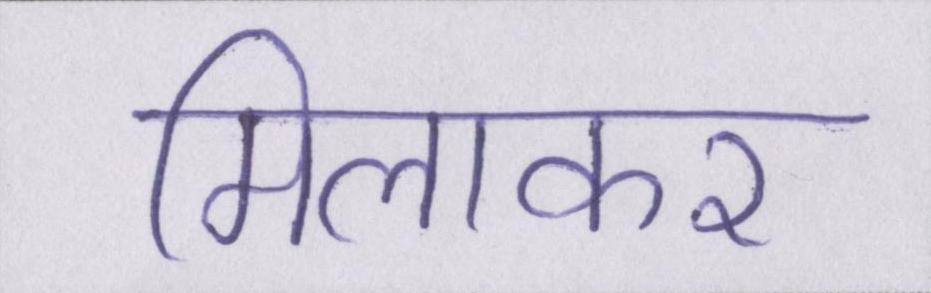 मिलाकर